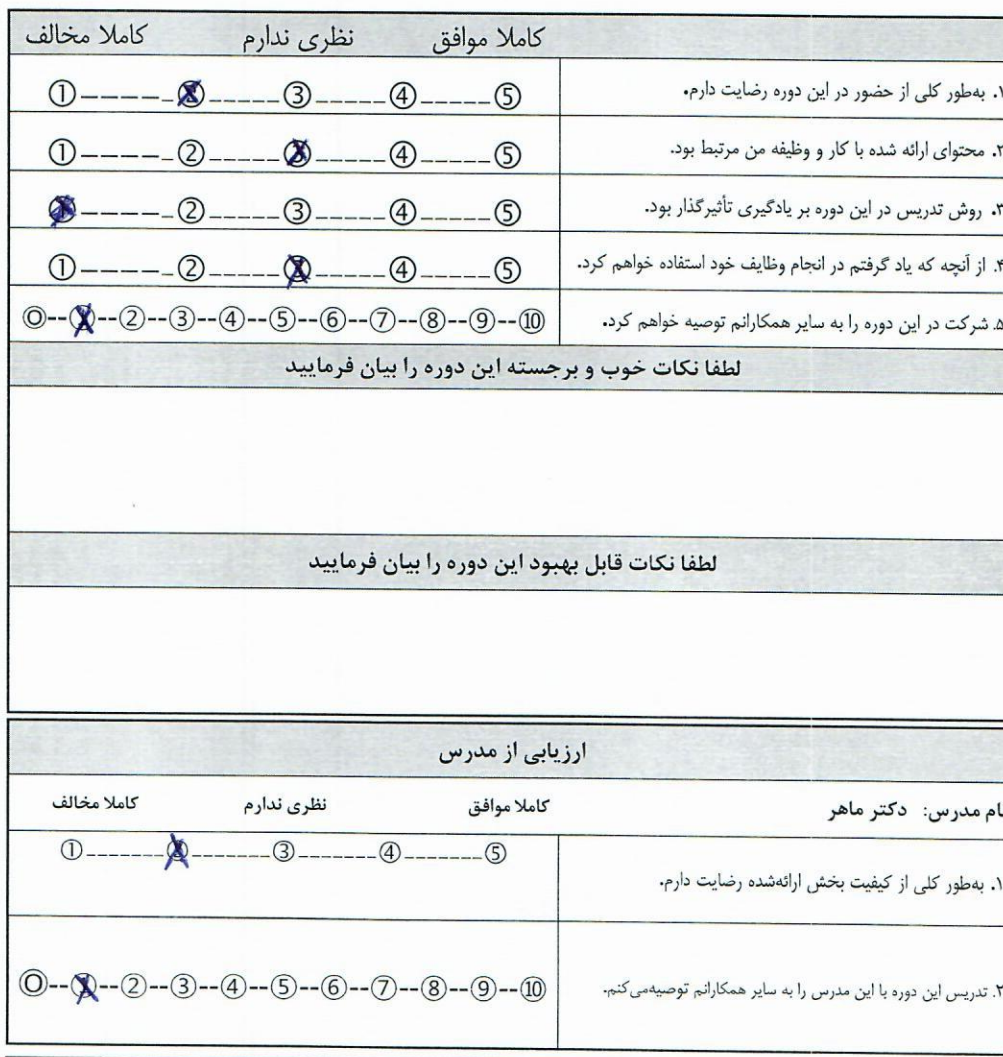 کاملا موافق نظری ندارم کاملا مخالف
۱. به‌طور کلی از حضور در این دوره رضایت دارم.
① ------ ② ------ ③ ------ ④ ------ ⑤
۲. محتوای ارائه شده با کار و وظیفه من مرتبط بود.
① ------ ② ------ ③ ------ ④ ------ ⑤
۳. روش تدریس در این دوره بر یادگیری تأثیرگذار بود.
① ------ ② ------ ③ ------ ④ ------ ⑤
۴. از آنچه که یاد گرفتم در انجام وظایف خود استفاده خواهم کرد.
① ------ ② ------ ③ ------ ④ ------ ⑤
۵. شرکت در این دوره را به سایر همکارانم توصیه خواهم کرد.
⓪--①--②--③--④--⑤--⑥--⑦--⑧--⑨--⑩
لطفا نکات خوب و برجسته این دوره را بیان فرمایید
لطفا نکات قابل بهبود این دوره را بیان فرمایید
ارزیابی از مدرس
نام مدرس: دکتر ماهر کاملا موافق نظری ندارم کاملا مخالف
۱. به‌طور کلی از کیفیت بخش ارائه‌شده رضایت دارم.
① ------- ② ------- ③ ------- ④ ------- ⑤
۲. تدریس این دوره با این مدرس را به سایر همکارانم توصیه‌می‌کنم.
⓪--①--②--③--④--⑤--⑥--⑦--⑧--⑨--⑩